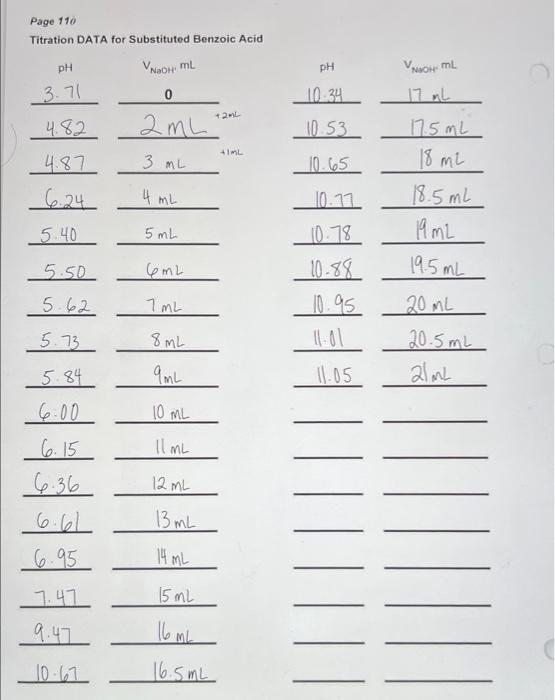 Page 110
Titration DATA for Substituted Benzoic Acid
pH VNaOH, mL
3.71 0
4.82 2 mL +2mL
4.87 3 mL +1mL
6.24 4 mL
5.40 5 mL
5.50 6 mL
5.62 7 mL
5.73 8 mL
5.84 9 mL
6.00 10 mL
6.15 11 mL
6.36 12 mL
6.61 13 mL
6.95 14 mL
7.47 15 mL
9.47 16 mL
10.67 16.5 mL
pH VNaOH, mL
10.34 17 mL
10.53 17.5 mL
10.65 18 mL
10.77 18.5 mL
10.78 19 mL
10.88 19.5 mL
10.95 20 mL
11.01 20.5 mL
11.05 21 mL